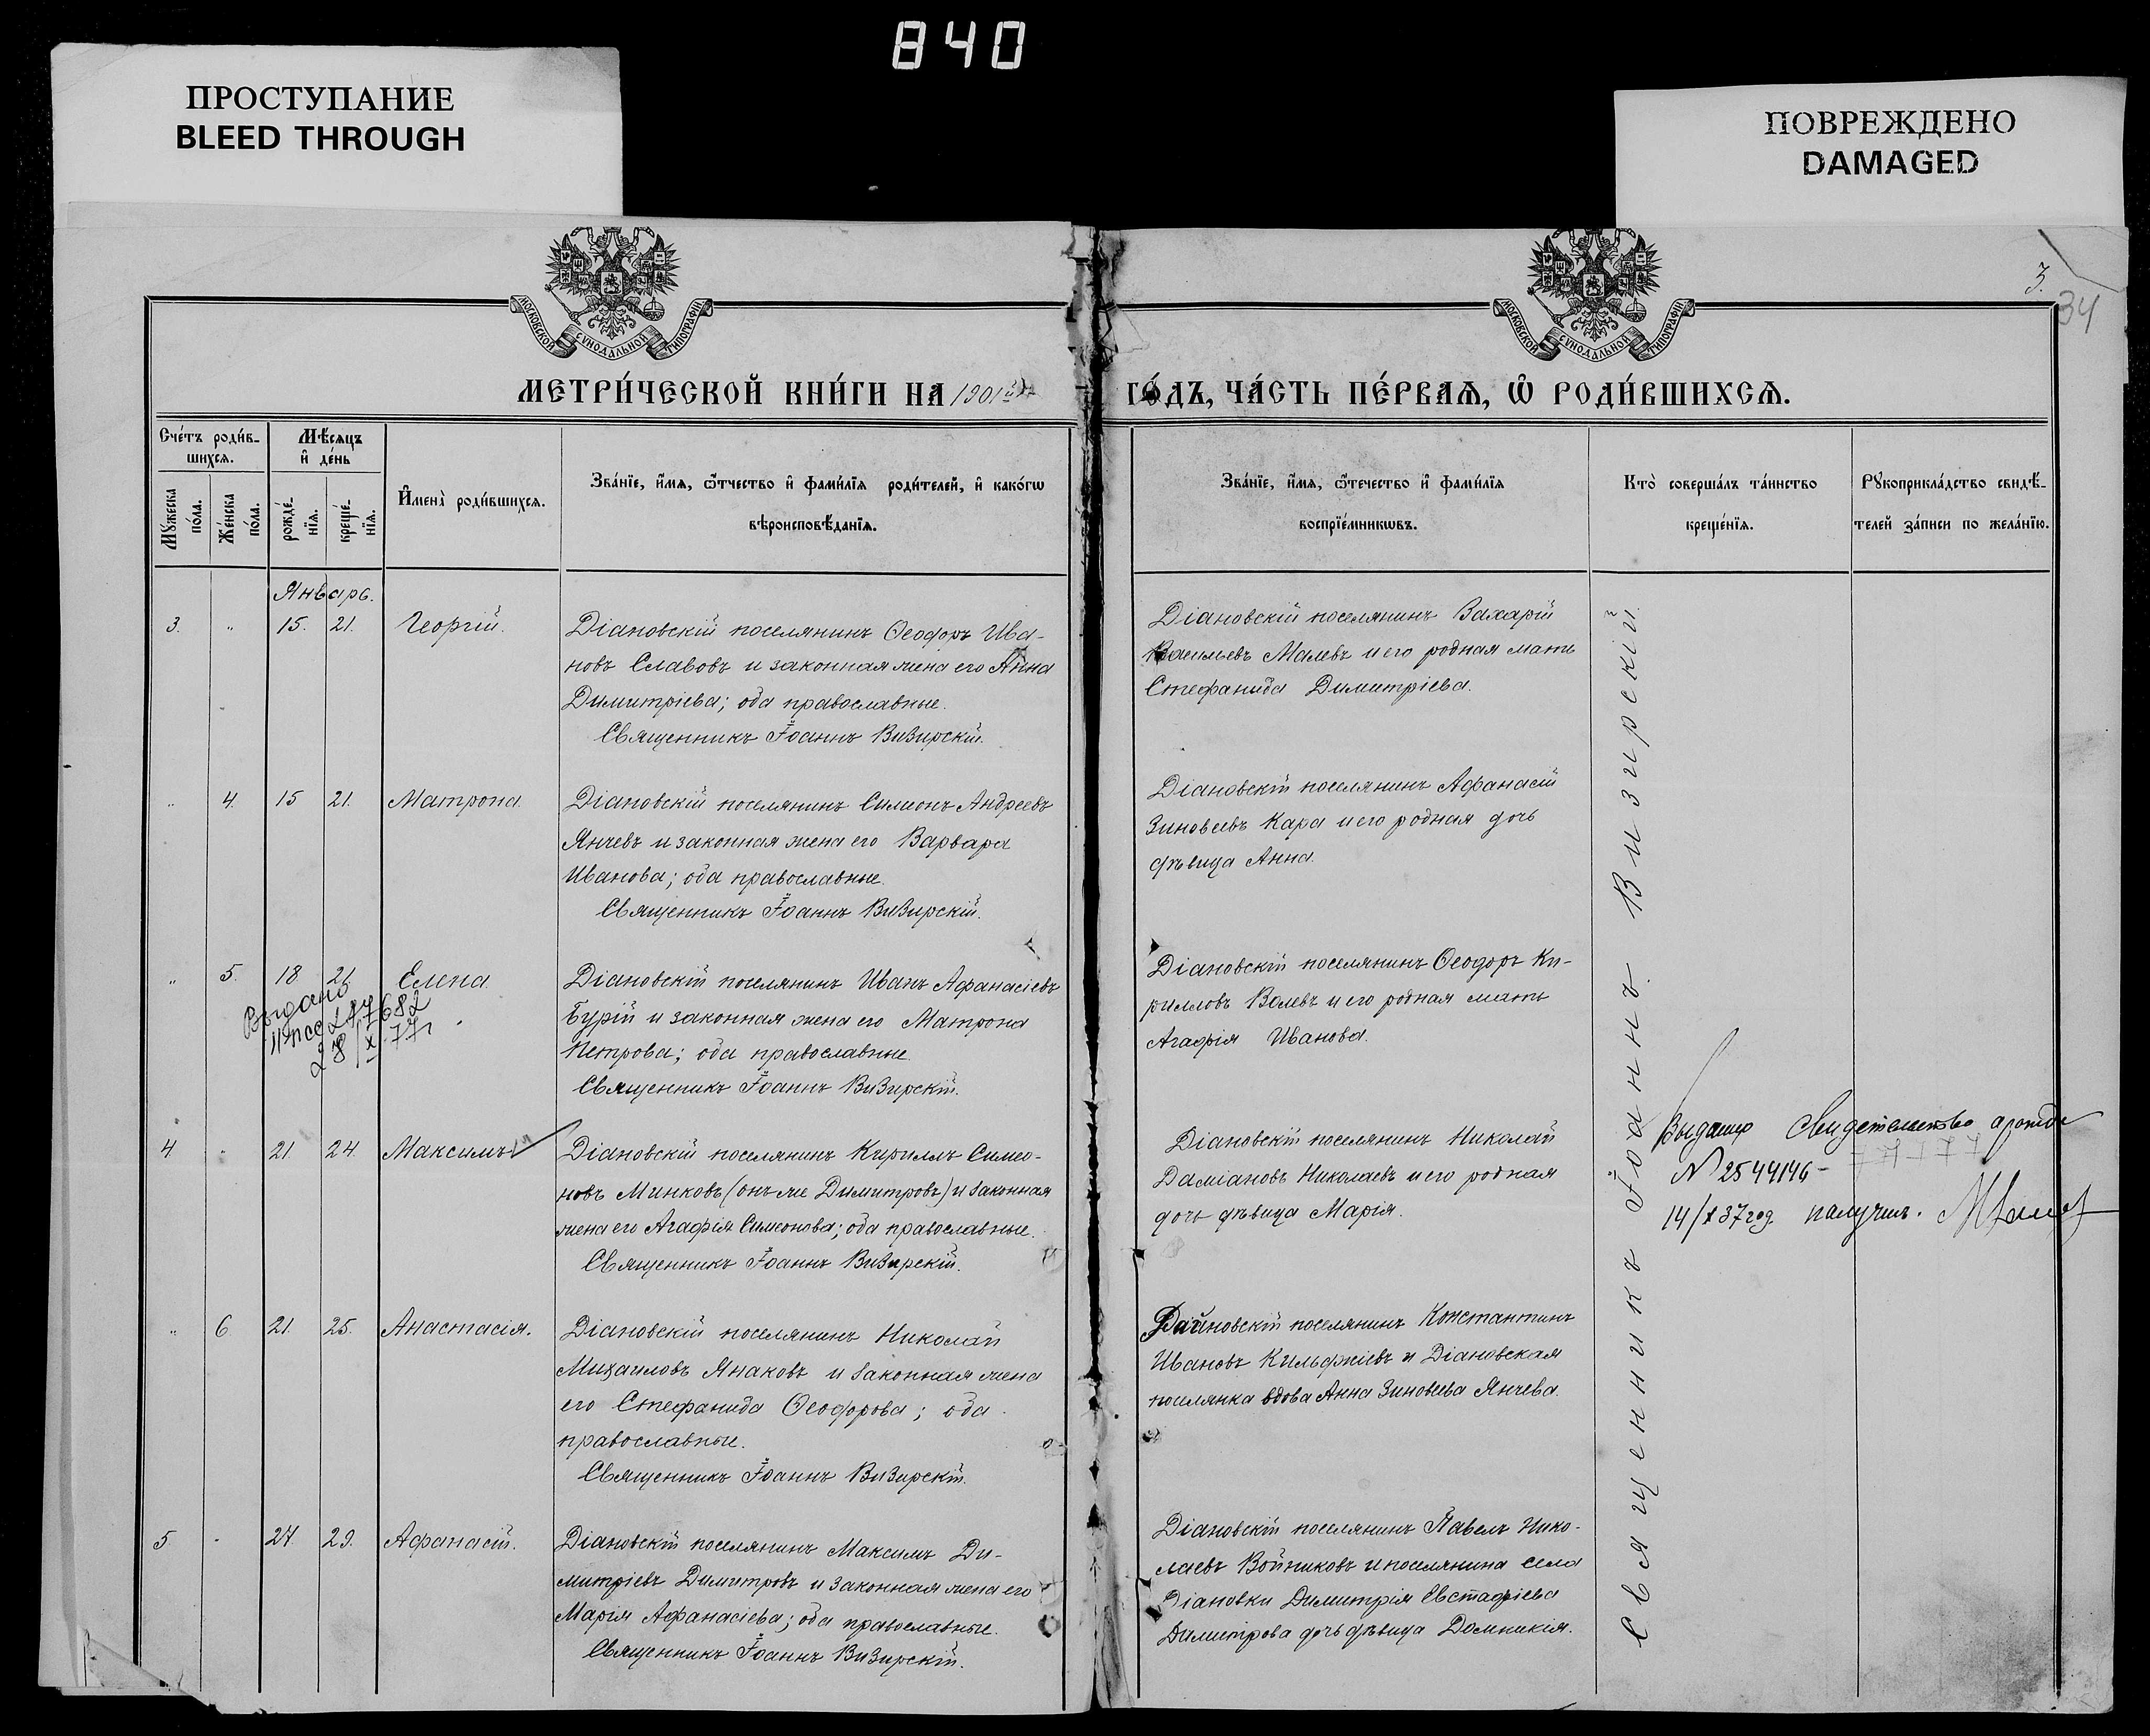 840
ПРОСТУПАНИЕ
BLEED THROUGH
ПОВРЕЖДЕНО
DAMAGED
3.
34
МОСКОВСКОЙ СѴНОДАЛЬНОЙ ТИПОГРАФІИ
МОСКОВСКОЙ СѴНОДАЛЬНОЙ ТИПОГРАФІИ
МЕТРИ́ЧЕСКОЙ КНИ́ГИ НА 1901й
ГО́ДЪ, ЧА́СТЬ ПЕ́РВАѦ, Ѡ҆ РОДИ́ВШИХСѦ.
Сче́тъ роди́в-
шихсѧ.
Мѣ́сѧцъ
и҆ де́нь
Мꙋ́жеска
по́ла.
Же́нска
по́ла.
рожде́-
нїѧ.
креще́-
нїѧ.
И҆мена̀ роди́вшихсѧ.
Зва́нїе, и҆́мѧ, ѻ҆́тчество и҆ фами́лїѧ роди́телей, и҆ како́гѡ
вѣроисповѣ́данїѧ.
Зва́нїе, и҆́мѧ, ѻ҆те́чество и҆ фами́лїѧ
воспрїе́мникѡвъ.
Кто̀ соверша́лъ та́инство
креще́нїѧ.
Рꙋкоприкла́дство свидѣ́-
телей за́писи по жела́нїю.
Январь.
3. " 15. 21. Георгій.
Діановскій поселянинъ Ѳеодоръ Ива-
новъ Славовъ и законная жена его Анна
Димитріева; оба православные.
Священникъ Іоаннъ Визирскій.
Діановскій поселянинъ Захарій
Васильевъ Малевъ и его родная мать
Стефанида Димитріева.
" 4. 15 21. Матрона.
Діановскій поселянинъ Симионъ Андреевъ
Янчевъ и законная жена его Варвара
Иванова; оба православные.
Священникъ Іоаннъ Визирскій.
Діановскій поселянинъ Афанасій
Зиновьевъ Кара и его родная дочь
дѣвица Анна.
" 5. 18 21. Елена
Выдано
28/X 77г
Діановскій поселянинъ Иванъ Афанасіевъ
Бурій и законная жена его Матрона
Петрова; оба православные.
Священникъ Іоаннъ Визирскій.
Діановскій поселянинъ Ѳеодоръ Ки-
рилловъ Волевъ и его родная мать
Агафія Иванова.
4 " 21. 24. Максимъ
Діановскій поселянинъ Кириллъ Симео-
новъ Минковъ (онъ же Димитровъ) и законная
жена его Агафія Симеонова; оба православные.
Священникъ Іоаннъ Визирскій.
Діановскій поселянинъ Николай
Даміановъ Николаевъ и его родная
дочь дѣвица Марія.
Выдано Свидетельство о рожде
№ 2544146 -
14/X 37 год получил.
" 6. 21. 25. Анастасія.
Діановскій поселянинъ Николай
Михаиловъ Янаковъ и законная жена
его Стефанида Ѳеодорова; оба
православные.
Священникъ Іоаннъ Визирскій.
Дайновскій поселянинъ Константинъ
Ивановъ Кильджіевъ и Діановская
поселянка вдова Анна Зиновьева Янчева.
5. " 27. 29. Афанасій.
Діановскій поселянинъ Максимъ Ди-
митріевъ Димитровъ и законная жена его
Марія Афанасіева; оба православные.
Священникъ Іоаннъ Визирскій.
Діановскій поселянинъ Павелъ Нико-
лаевъ Войниковъ и поселянина села
Діановки Димитрія Евстафіева
Димитрова дочь дѣвица Домникія.
Священникъ Іоаннъ Визирскій.